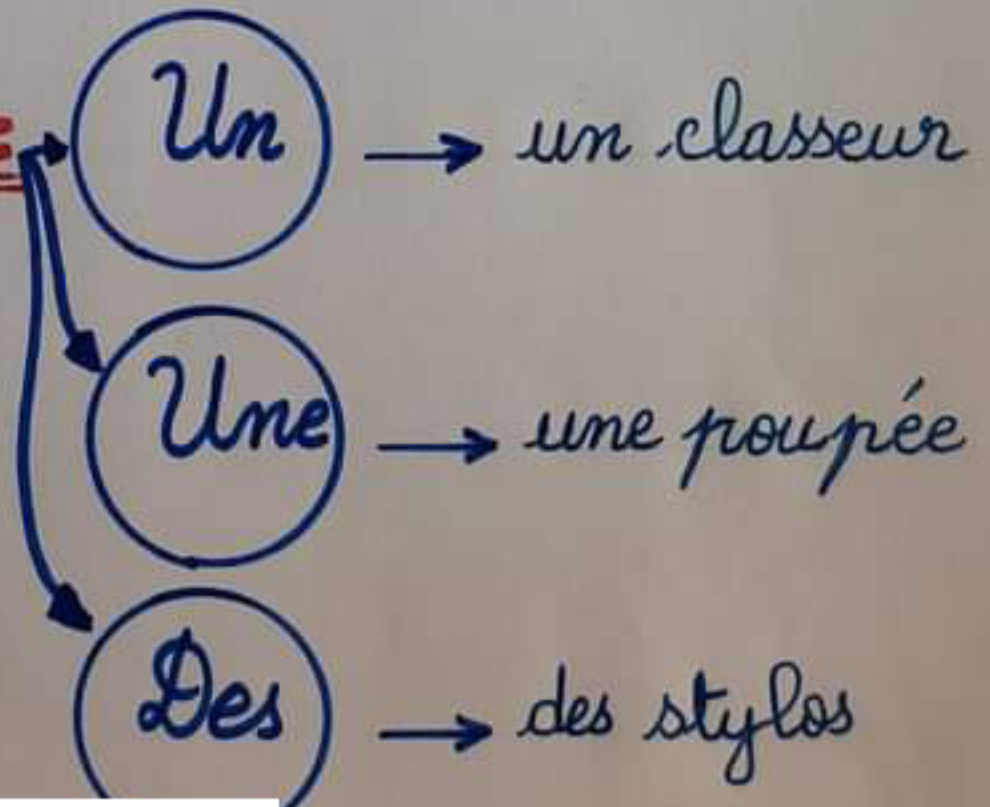 Un → un classeur
Une → une poupée
Des → des stylos